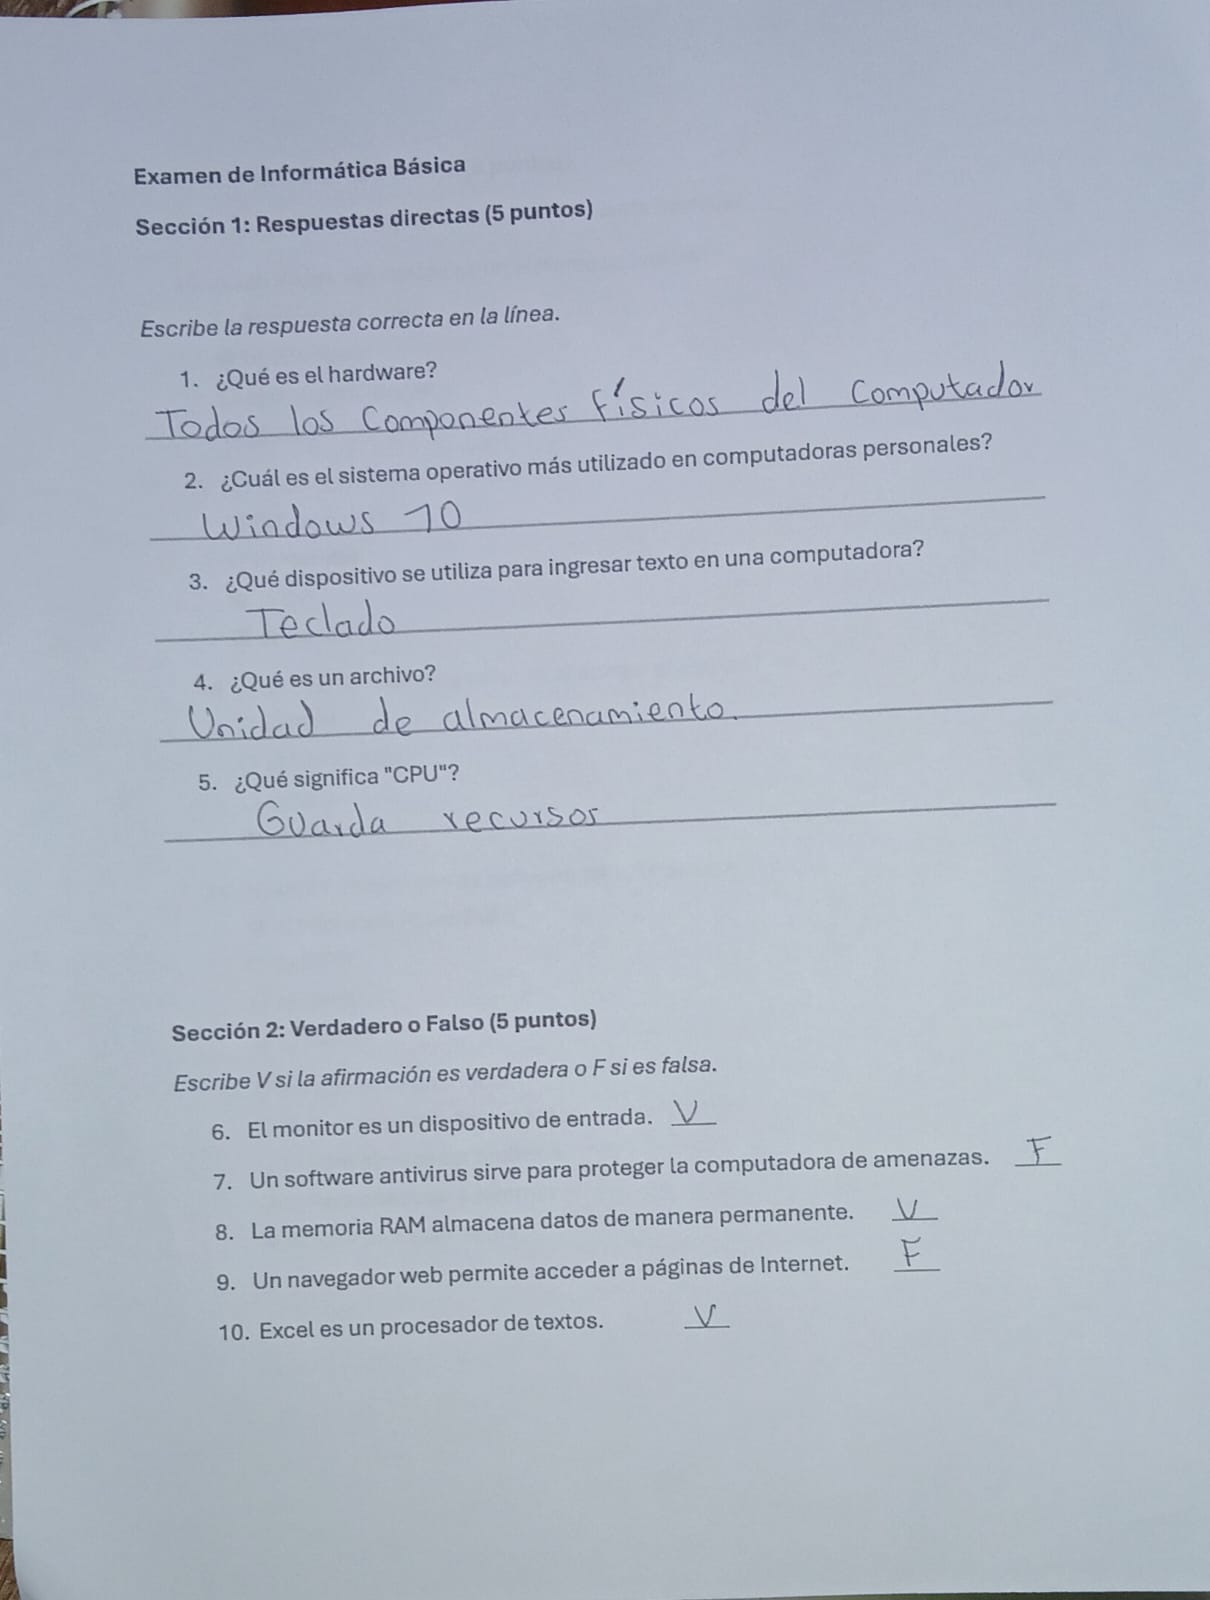 Examen de Informática Básica
Sección 1: Respuestas directas (5 puntos)
Escribe la respuesta correcta en la línea.
1. ¿Qué es el hardware?
Todos los Componentes físicos del Computador
2. ¿Cuál es el sistema operativo más utilizado en computadoras personales?
Windows 10
3. ¿Qué dispositivo se utiliza para ingresar texto en una computadora?
Teclado
4. ¿Qué es un archivo?
Unidad de almacenamiento.
5. ¿Qué significa "CPU"?
Guarda recursos
Sección 2: Verdadero o Falso (5 puntos)
Escribe V si la afirmación es verdadera o F si es falsa.
6. El monitor es un dispositivo de entrada. V
7. Un software antivirus sirve para proteger la computadora de amenazas. F
8. La memoria RAM almacena datos de manera permanente. V
9. Un navegador web permite acceder a páginas de Internet. F
10. Excel es un procesador de textos. V